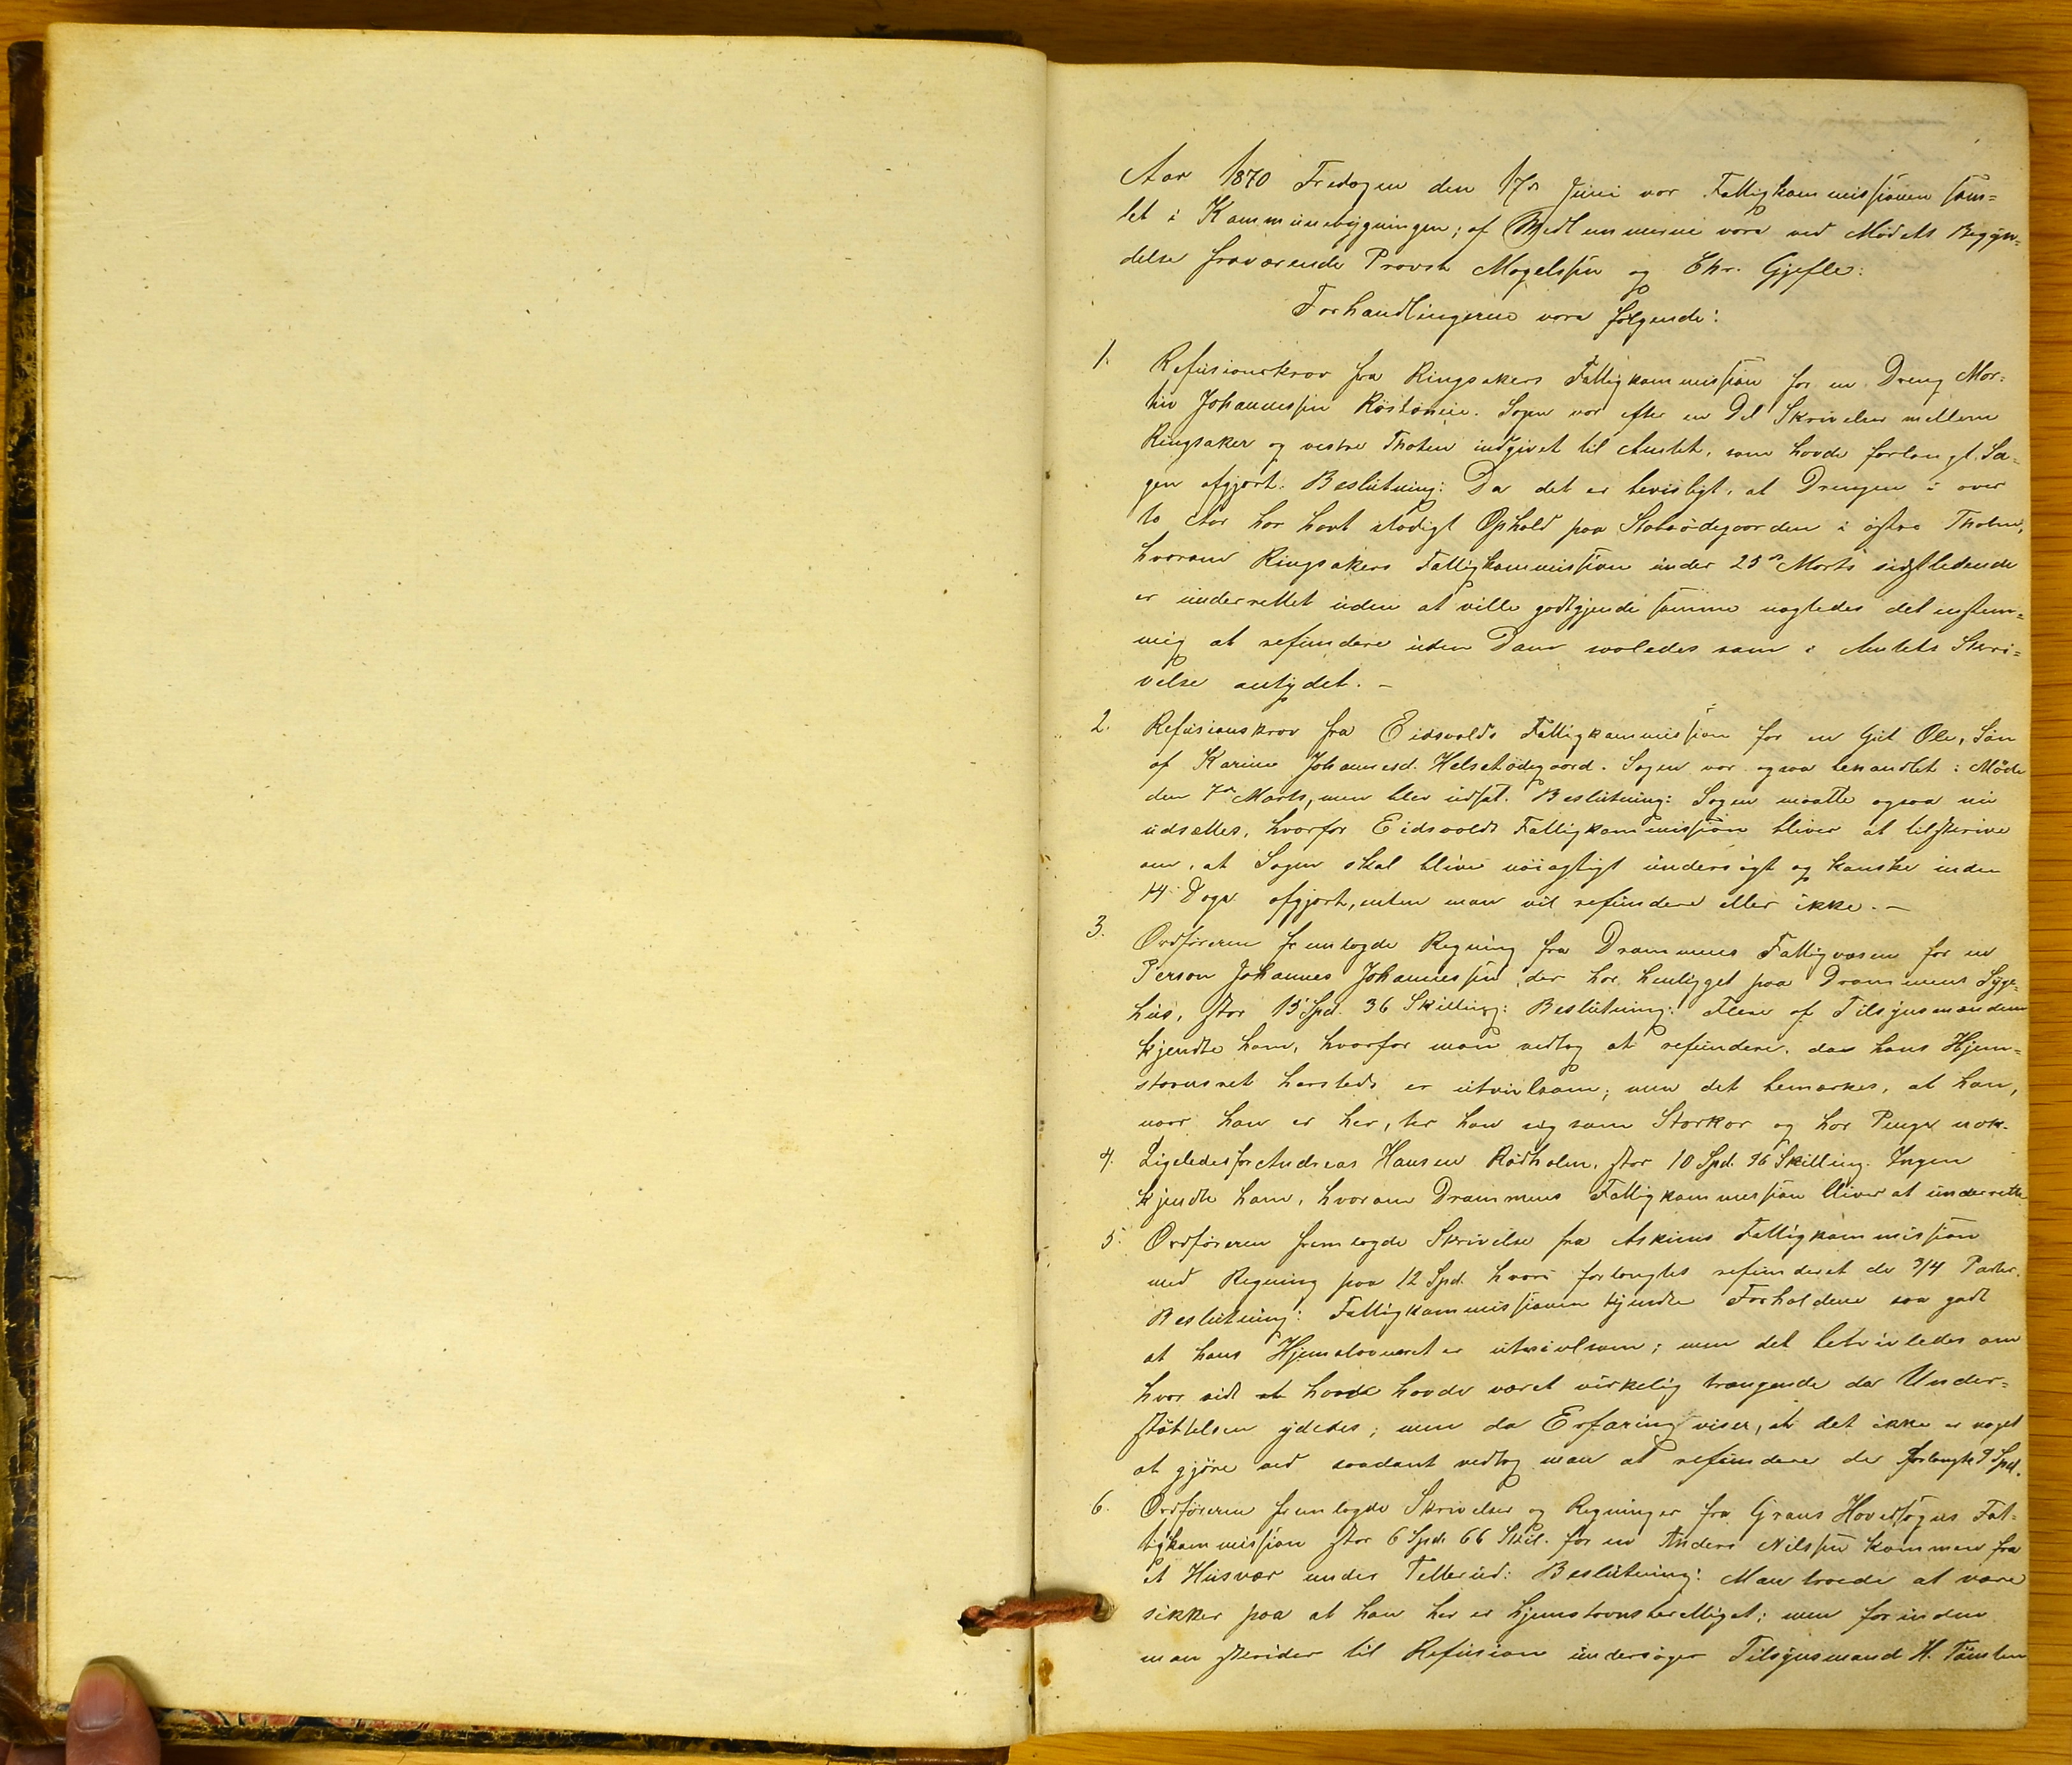 Aar 1870 Fredagen den 17de Juni var Fattigkommissionen sam=
let i Kommunebygningen; af Medlemmerne vare ved Mødets Begyn=
delse fraværende Provst Magelssen og Chr. Gjefle:
Forhandlingerne vare følgende:
1. Refusionskrav fra Ringsakers Fattigkommission for en Dreng Mor=
ten Johannessen. Sagen var efter en Del Skrivelser mellem
Ringsaker og vestre Thoten indgivet til Amtet, som havde forlangt Sa=
gen afgjort. Beslutning: Da det er bevisligt, at Drengen i over
to Aar har havt stadigt Ophold paa i østre Thoten,
hvorom Ringsakers Fattigkommission under 25de Marts sidstledende
er underrettet uden at ville godkjende samme nægtedes det enstem=
mig at refundere uden Dom saaledes som i Amtets Skri=
velse antydet. –
2. Refusionskrav fra Eidsvolds Fattigkommission for en Gut Ole, Søn
af Karine Johannesd. Helsetødegaard. Sagen var ogsaa behandlet i Møde
den 7de Marts, men blev udsat. Beslutning: Sagen maatte ogsaa nu
udsættes, hvorfor Eidsvolds Fattigkommission bliver at tilskrive
om, at Sagen skal blive nøiagtigt undersøgt og kanske inden
14 Dage afgjort, enten man vil refundere eller ikke. –
3. Ordføreren fremlagde Regning fra Drammens Fattigvæsen for en
Person Johannes Johannessen, der har henligget paa Drammens Syge=
hus, stor 15 Spd. 36 Skilling: Beslutning: Flere af Tilsynsmændene
kjendte ham, hvorfor man vedtog at refundere, da hans Hjem=
stavnsret hersteds er utvivlsom; men det bemærkes, at han,
naar han er her, ter han sig som Storkar og har Penge nok.
4. Ligeledes for Andreas Hansen Rødholm, stor 10 Spd. 96 Skilling. Ingen
kjendte ham, hvorom Drammens Fattigkommission bliver at underrette
5. Ordføreren fremlagde Skrivelse fra Askims Fattigkommission
med Regning paa 12 Spd. hvori forlangtes refunderet de 3/4 Parter.
Beslutning: Fattigkommissionen kjendte Forholdene saa godt
at hans Hjemstavnsret er utvivlsom; men det betvivledes om
hvor vidt havde været virkelig trængende da Under=
støttelsen ydedes; men da Erfaring viser, at det ikke er noget
at gjøre ved saadant vedtog man at refundere de forlangte 9 Spd.
6. Ordføreren fremlagde Skrivelser og Regninger fra Grans Hovedsogns Fat=
tigkommission stor 6 Spd. 66 Skil. for en Anders Nilssen kommen fra
et Husvær under Tellerud: Beslutning: Man troede at være
sikker paa at han her er hjemstavnsberettiget; men forinden
man skrider til Refusion undersøger Tilsynsmand H.